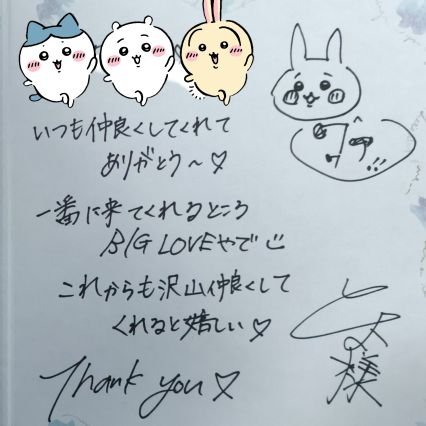 いつも仲良くしてくれて
ありがとう〜♡
一番に来てくれるところ
BIG LOVEやで
これからも沢山仲良くして
くれると嬉しい♡
Thank you♡
様